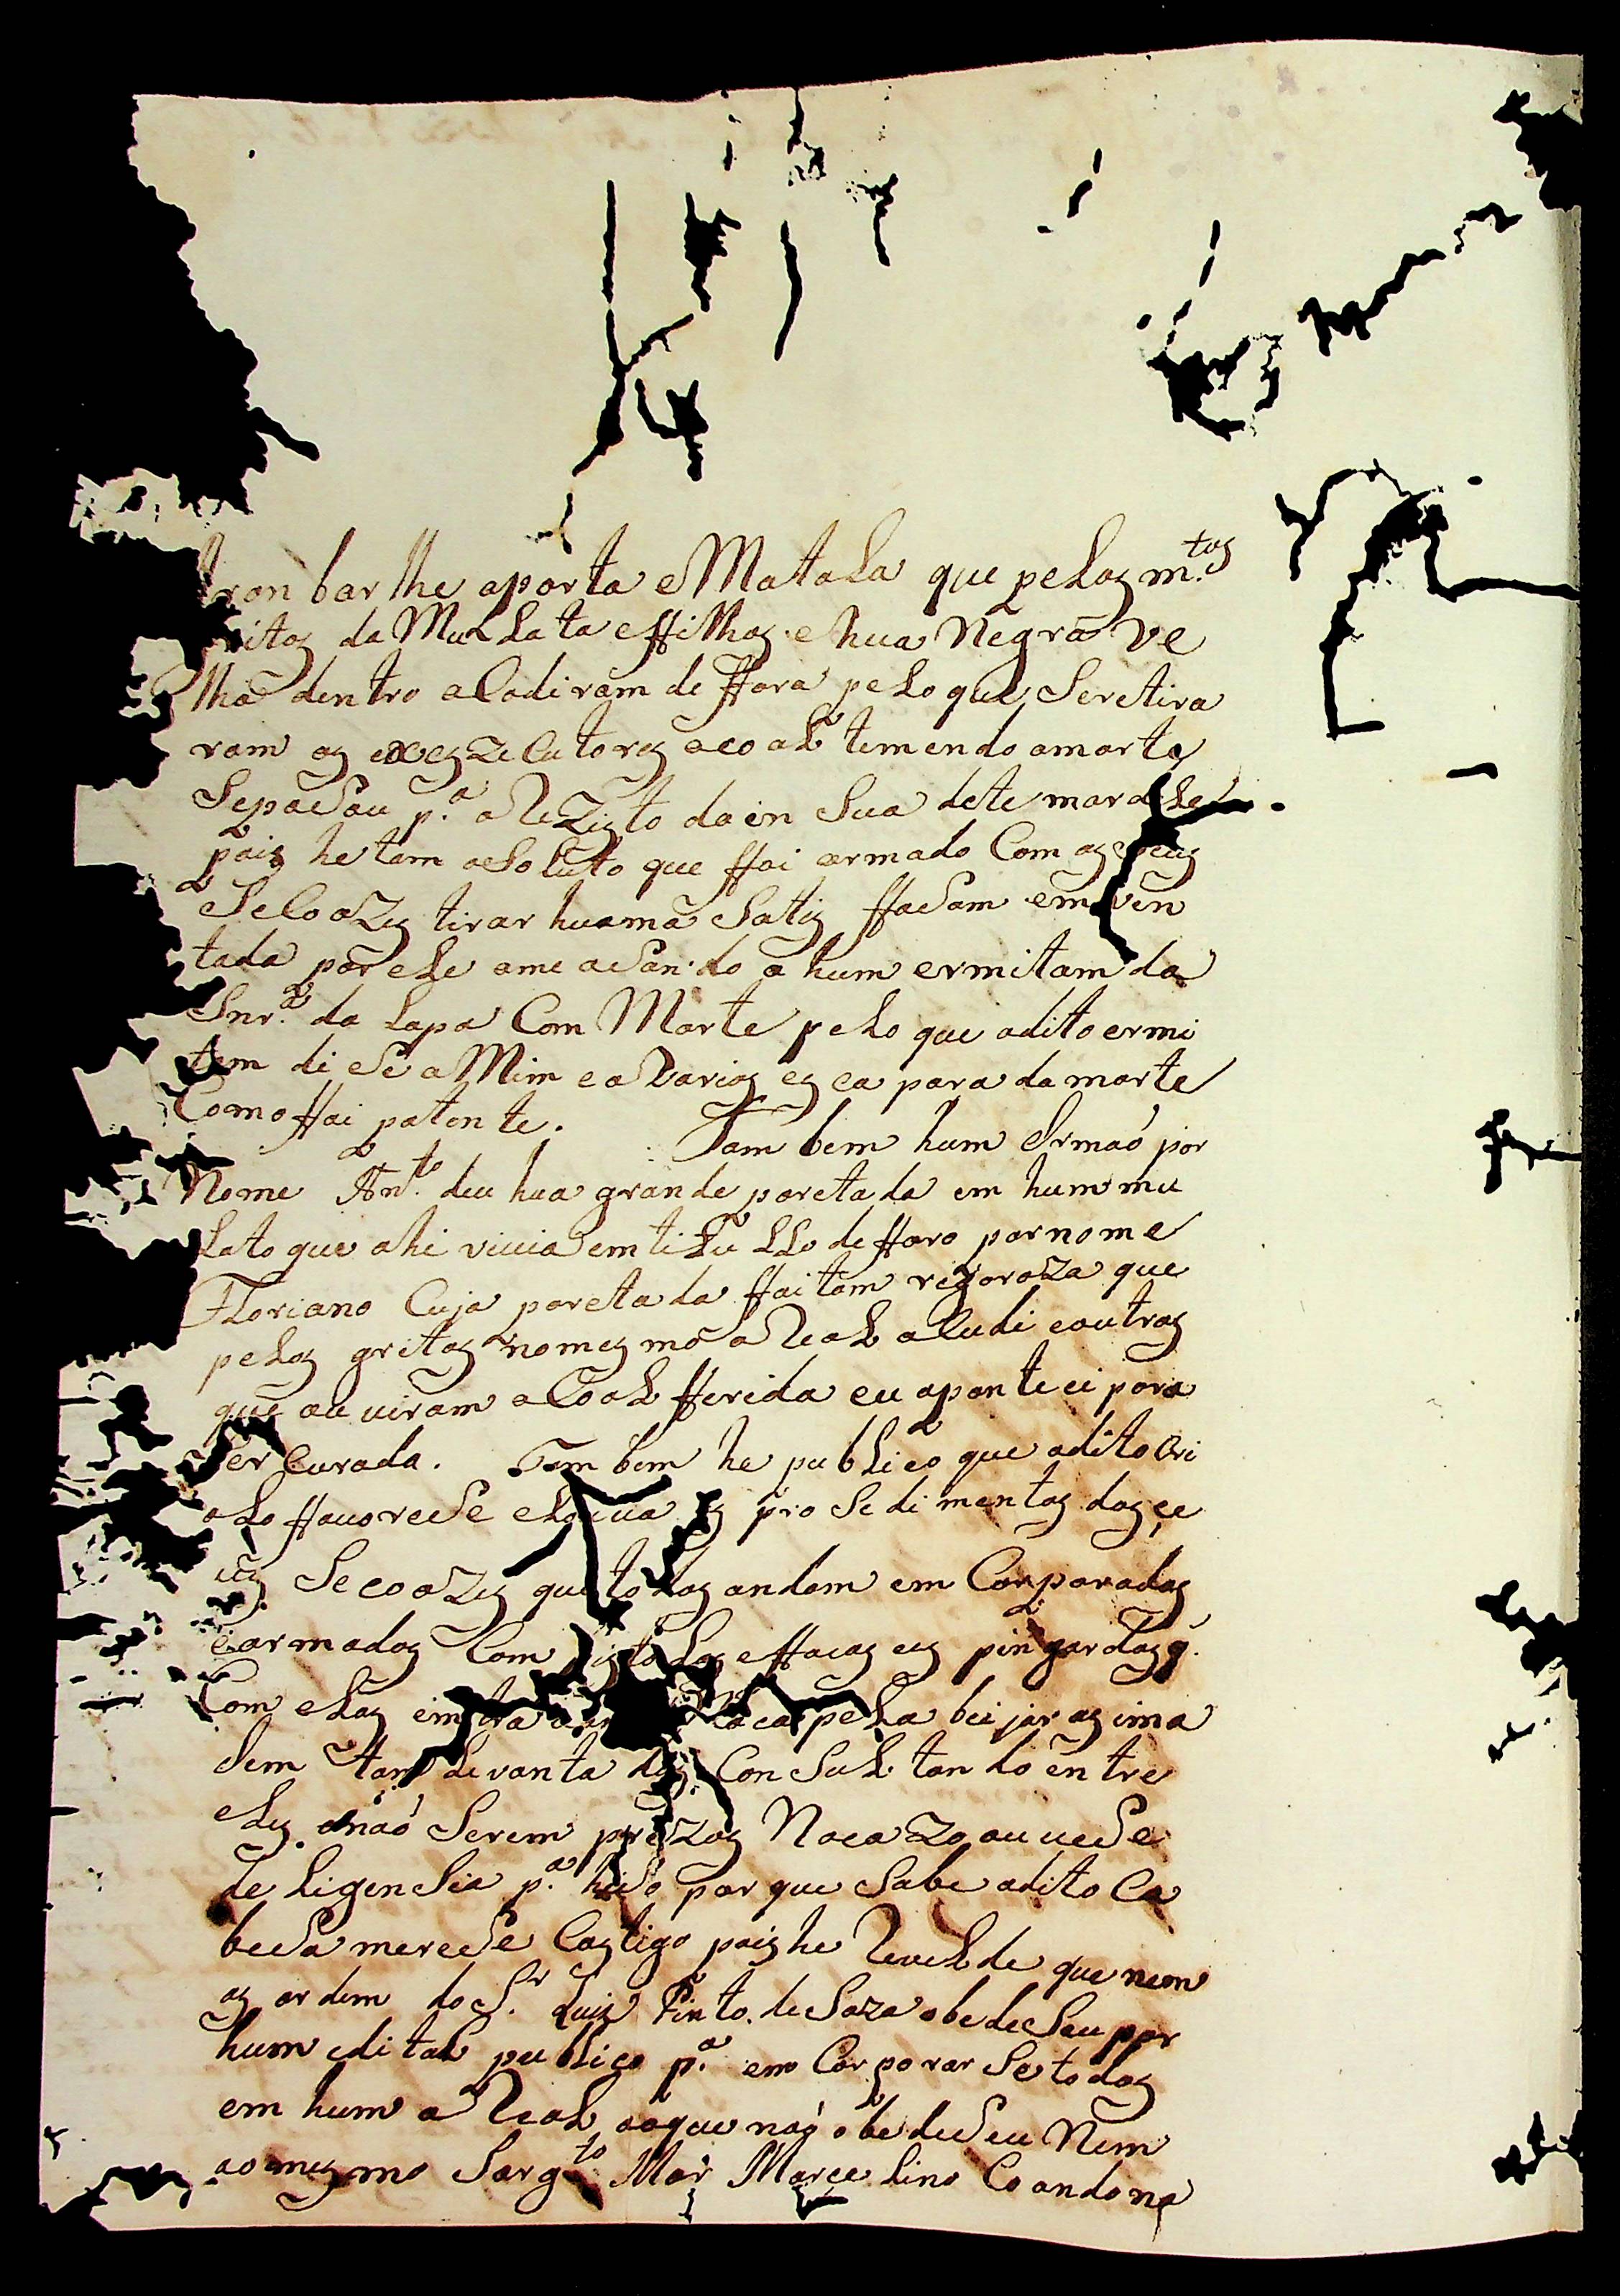 Tron bar lhe aporta e Matala que pelos m.tos
gritos da Mullata effilhos e hua Negra ve
lha dentro acodiram de ffora pelo que Seretira
ram os exeszecutores acoal temendo amorte
Sepasou p.a a Rezisto da in Sua
pois hetam asoluto que ffoi armado Com os seus
Secoazes tirar huamá Satis ffasam em ven
tada por ele ame asan do a hum ermitam da
Snr.a da Lapa Com Morte pelo que adito ermi
tam di Se a Mim e a Varios es capara da morte
Como ffoi patente. Tam bem hum Irmaó por
Nome Ant.o deu hua grande poretada em hum mu
Lato que ahi viuia em de fforo por nome
Floriano Cuja poretada ffoi tam regoroza que
pelos gritos nomes mo a Real aCudi e outros
que ou uiram aCoal fferida eu apontei para
Ser Curada. Tam bem he publico que adito Cri
olo ffauorese pro Sedimentos dos se
us Secoazes que todos andam em Corporados
e armados Com pistolas effacas es pingardas q.
Com elas entra capela beijar as ima
Sem tam Levanta dos Con Sul tan do en tre
eles anaó Serem prezos Nocazo ou uese
de Ligensia p.a hiso por que Sabe adito Ca
besa merese Castigo pois he Revelde que nem
as ordem do S.r Luis Pinto de Soza obedeseu por
hum edital publico p.a em Corporar Se todos
em hum a Real aoque naó obedeseu Nem
ao mesmo Sarg.to Mor Marcelino Coando na